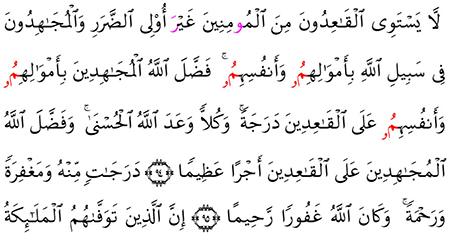 لَّا يَسْتَوِى ٱلْقَٰعِدُونَ مِنَ ٱلْمُومِنِينَ غَيْرَ أُوْلِى ٱلضَّرَرِ وَٱلْمُجَٰهِدُونَ
فِى سَبِيلِ ٱللَّهِ بِأَمْوَٰلِهِمُۥ وَأَنفُسِهِمُۥ ۚ فَضَّلَ ٱللَّهُ ٱلْمُجَٰهِدِينَ بِأَمْوَٰلِهِمُۥ
وَأَنفُسِهِمُۥ عَلَى ٱلْقَٰعِدِينَ دَرَجَةً ۚ وَكُلًّا وَعَدَ ٱللَّهُ ٱلْحُسْنَىٰ ۚ وَفَضَّلَ ٱللَّهُ
ٱلْمُجَٰهِدِينَ عَلَى ٱلْقَٰعِدِينَ أَجْرًا عَظِيمًا ﴿٩٤﴾ دَرَجَٰتٍ مِّنْهُ وَمَغْفِرَةً
وَرَحْمَةً ۚ وَكَانَ ٱللَّهُ غَفُورًا رَّحِيمًا ﴿٩٥﴾ إِنَّ ٱلَّذِينَ تَوَفَّىٰهُمُ ٱلْمَلَٰٓئِكَةُ